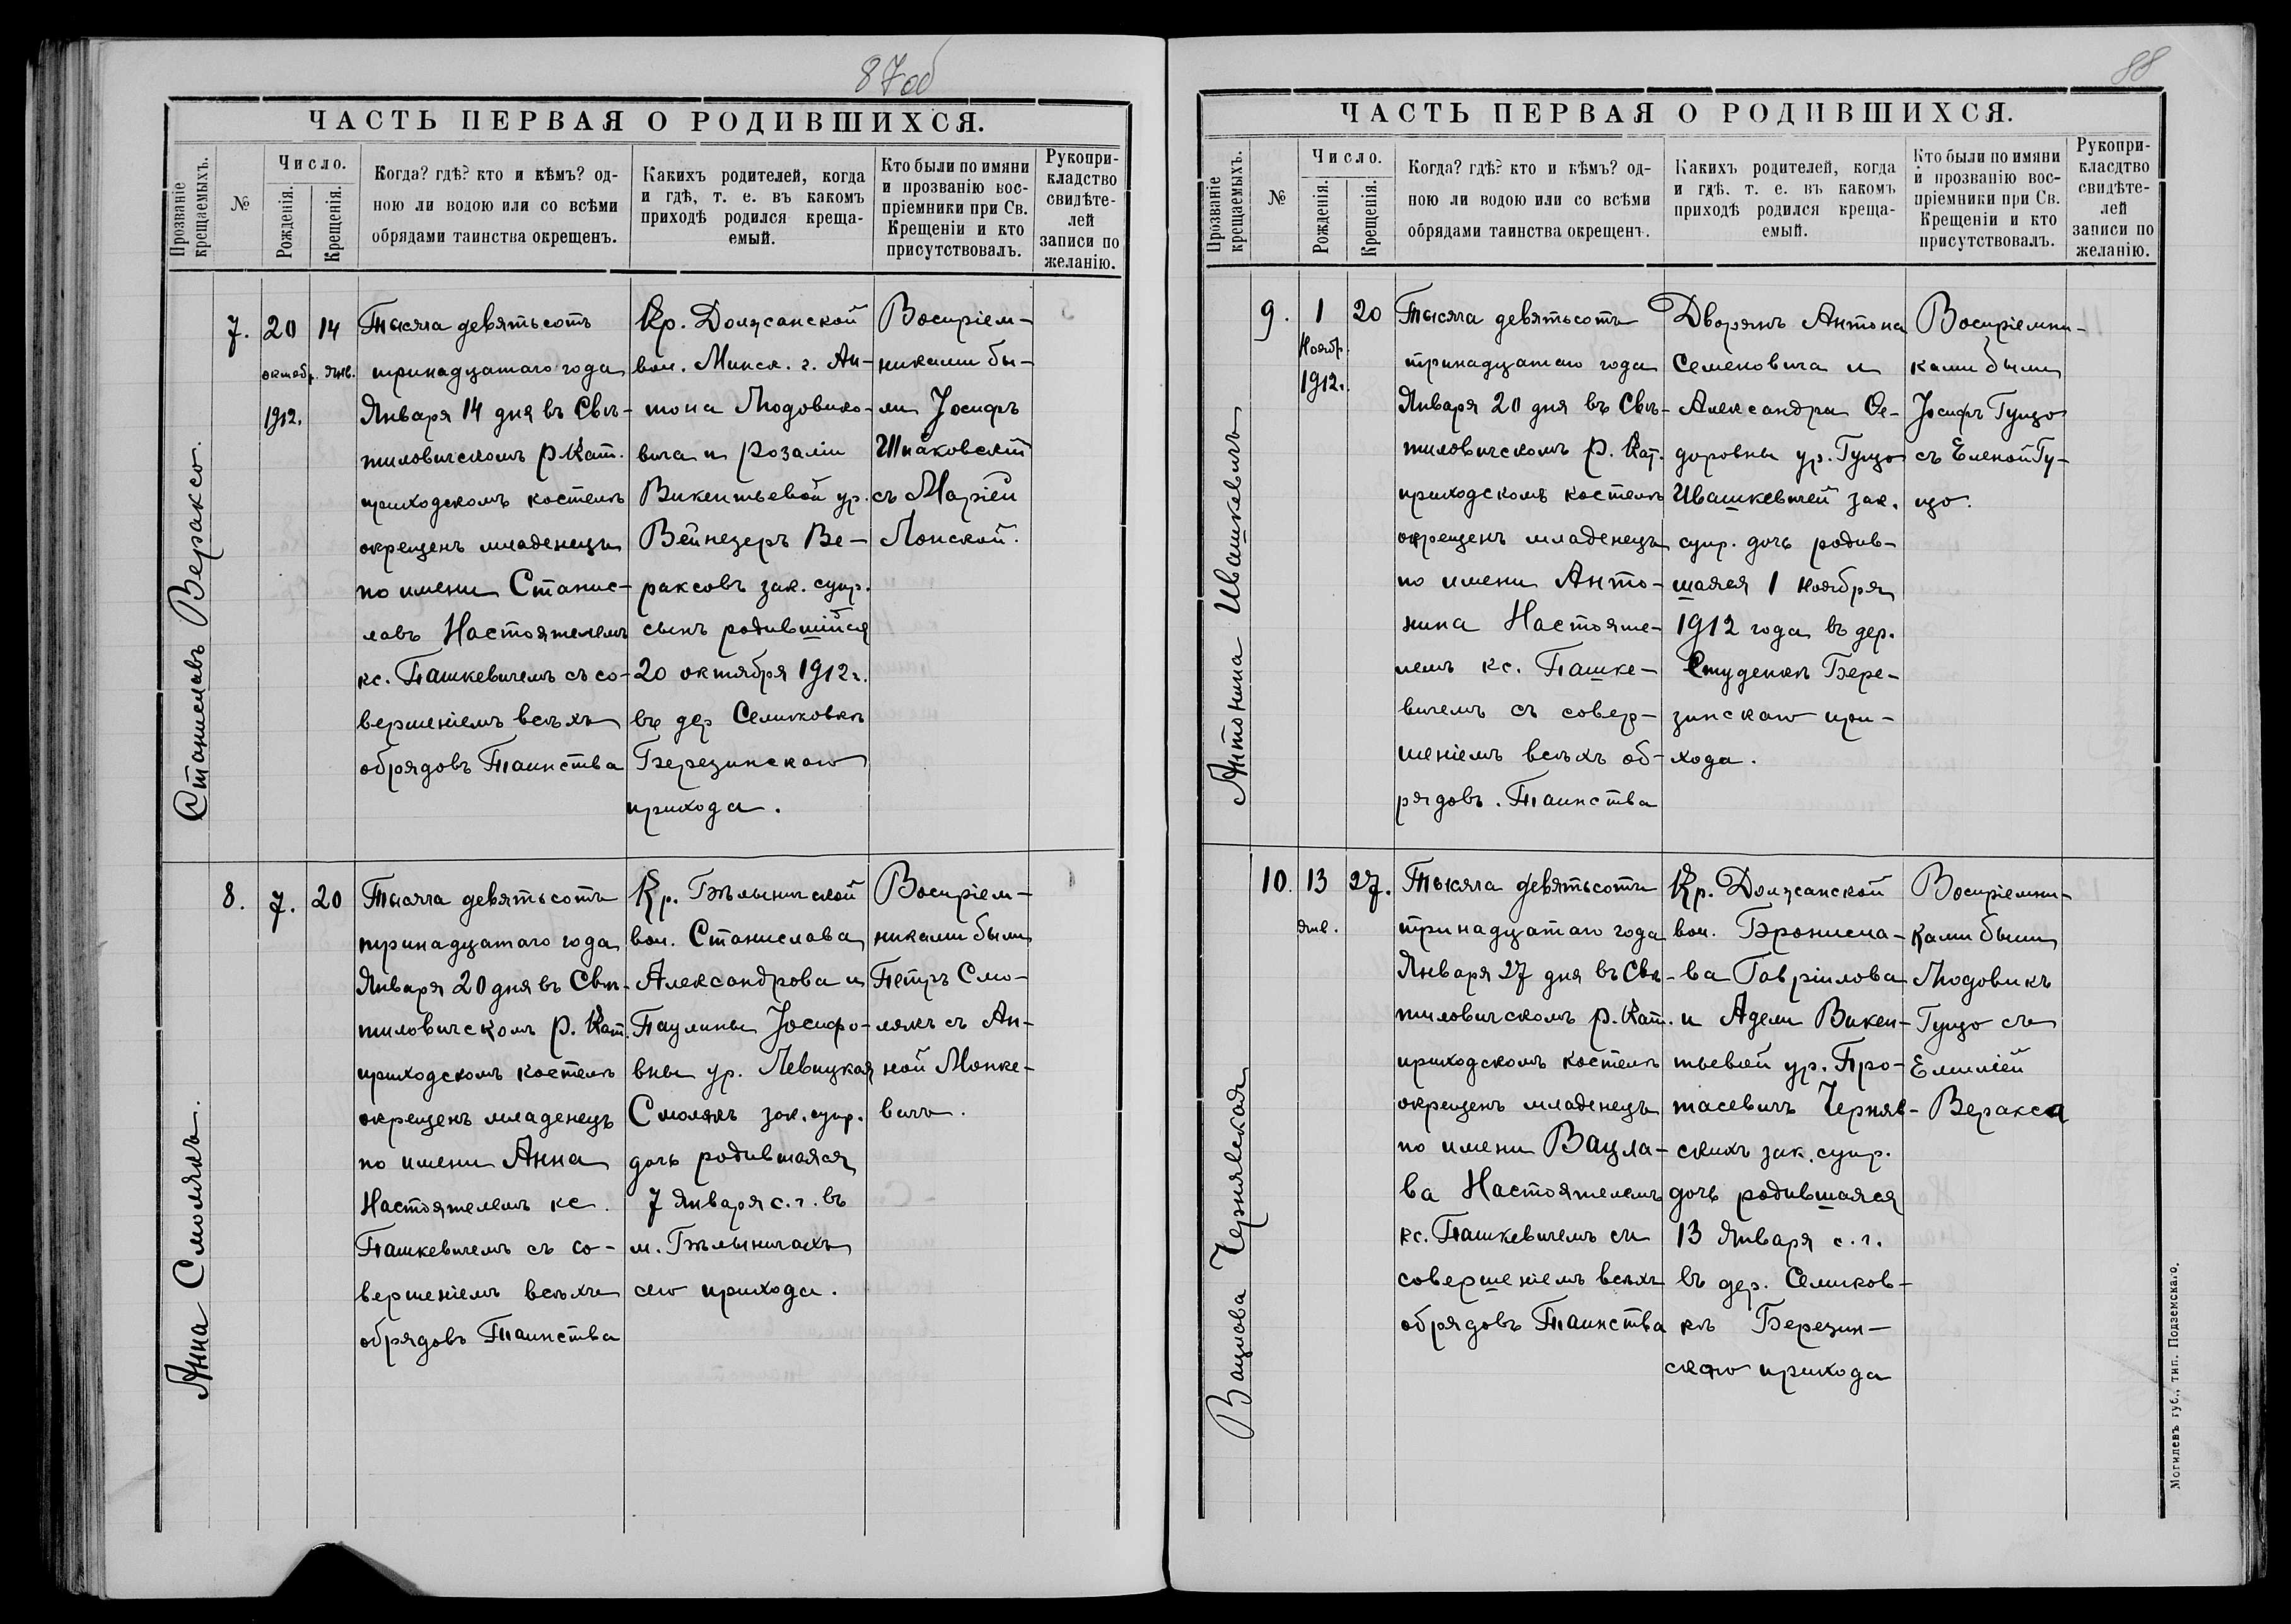 87об
ЧАСТЬ ПЕРВАЯ О РОДИВШИХСЯ.
Прозваніе крещаемыхъ.
№
Число.
Рожденія.
Крещенія.
Когда? гдѣ? кто и кѣмъ? од-
ною ли водою или со всѣми
обрядами таинства окрещенъ.
Какихъ родителей, когда
и гдѣ, т. е. въ какомъ
приходѣ родился креща-
емый.
Кто были по имяни
и прозванію вос-
пріемники при Св.
Крещеніи и кто
присутствовалъ.
Рукопри-
кладство
свидѣте-
лей
записи по
желанію.
Станиславъ Вераксо.
7.
20
октобр.
1912.
14
янв.
Тысяча девятьсотъ
тринадцатаго года
Января 14 дня въ Свѣ-
тиловичскомъ р. Кат.
приходскомъ костелѣ
окрещенъ младенецъ
по имени Станис-
лавъ Настоятелемъ
кс. Пашкевичемъ съ со-
вершеніемъ всѣхъ
обрядовъ Таинства
Кр. Должанской
вол. Минск. г. Ан-
тона Людовико-
вича и Розаліи
Викентьевой ур.
Вейнезеръ Ве-
раксовъ зак. супр.
сынъ родившійся
20 октября 1912 г.
въ дер Селиковкѣ
Березинскаго
прихода.
Воспріем-
никами бы-
ли Іосифъ
Шпаковскій
съ Маріей
Лонской.
Анна Смолякъ.
8.
7.
20
Тысяча девятьсотъ
тринадцатаго года
Января 20 дня въ Свѣ-
тиловичскомъ р. Кат.
приходскомъ костелѣ
окрещенъ младенецъ
по имени Анна
Настоятелемъ кс.
Пашкевичемъ съ со-
вершеніемъ всѣхъ
обрядовъ Таинства
Кр. Бѣлыничской
вол. Станислава
Александрова и
Паулины Іосифо-
вны ур. Левицкая
Смолякъ зак. супр.
дочь родившаяся
7 Января с. г. въ
м. Бѣлыничахъ
сего прихода.
Воспріем-
никами были
Петръ Смо-
лякъ съ Ан-
ной Монке-
вичъ.
88
ЧАСТЬ ПЕРВАЯ О РОДИВШИХСЯ.
Прозваніе крещаемыхъ.
№
Число.
Рожденія.
Крещенія.
Когда? гдѣ? кто и кѣмъ? од-
ною ли водою или со всѣми
обрядами таинства окрещенъ.
Какихъ родителей, когда
и гдѣ, т. е. въ какомъ
приходѣ родился креща-
емый.
Кто были по имяни
и прозванію вос-
пріемники при Св.
Крещеніи и кто
присутствовалъ.
Рукопри-
класдтво
свидѣте-
лей
записи по
желанію.
Антонина Ивашкевичъ
9.
1
Ноябр.
1912.
20
Тысяча девятьсотъ
тринадцатаго года
Января 20 дня въ Свѣ-
тиловичскомъ р. Кат.
приходскомъ костелѣ
окрещенъ младенецъ
по имени Анто-
нина Настояте-
лемъ кс. Пашке-
вичемъ съ совер-
шеніемъ всѣхъ об-
рядовъ. Таинства
Дворянъ Антона
Семеновича и
Александра Ѳе-
доровны ур. Гуцо
Ивашкевичей зак.
супр. дочь родив-
шаяся 1 Ноября
1912 года въ дер.
Студенкѣ Бере-
зинскаго при-
хода.
Воспріемни-
ками были
Іосифъ Гуцо
съ Еленой Гу-
цо.
Вацлова Чернявская
10.
13
Янв.
27.
Тысяча девятьсотъ
тринадцатаго года
Января 27 дня въ Свѣ-
тиловичскомъ р. Кат.
приходскомъ костелѣ
окрещенъ младенецъ
по имени Вацла-
ва Настоятелемъ
кс. Пашкевичемъ съ
совершеніемъ всѣхъ
обрядовъ Таинства
Кр. Должанской
вол. Бронисла-
ва Гавріилова
и Адели Викен-
тьевой ур. Про-
тасевичъ Черняв-
скихъ зак. супр.
дочь родившаяся
13 Января с. г.
въ дер. Селиков-
кѣ Березин-
скаго прихода
Воспріемни-
ками были
Людовикъ
Гуцо съ
Емиліей
Веракса
Могилевъ губ., тип. Подземскаго.